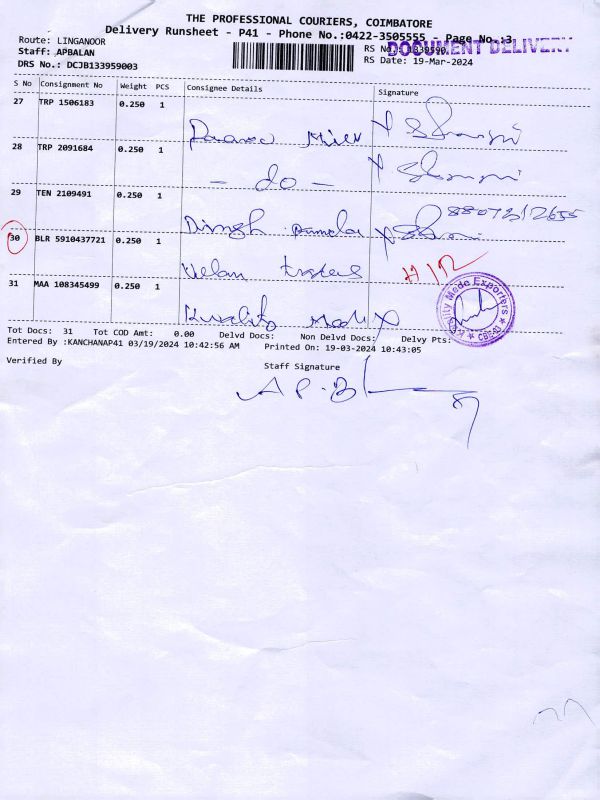 THE PROFESSIONAL COURIERS, COIMBATORE
Delivery Runsheet - P41 - Phone No.:0422-3505555 - Page No.:3
DOCUMENT DELIVERY
Route: LINGANOOR
RS No
Staff: APBALAN
RS Date: 19-Mar-2024
DRS No.: DCJB133959003
S No Consignment No Weight PCS Consignee Details Signature
27 TRP 1506183 0.250 1
28 TRP 2091684 0.250 1
- do -
29 TEN 2109491 0.250 1
8807212655
30 BLR 5910437721 0.250 1
Velan
31 MAA 108345499 0.250 1
Made Exporters
CBE-03
Tot Docs: 31 Tot COD Amt: 0.00 Delvd Docs: Non Delvd Docs: Delvy Pts:
Entered By :KANCHANAP41 03/19/2024 10:42:56 AM Printed On: 19-03-2024 10:43:05
Verified By
Staff Signature
A P. B